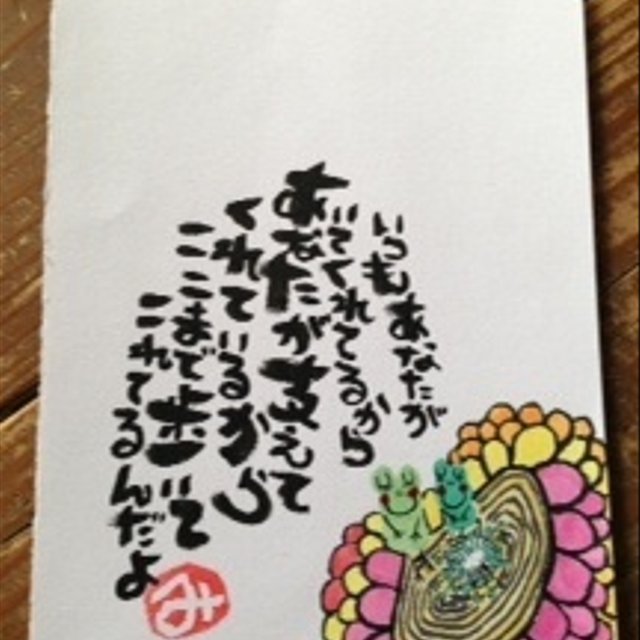 いつもあなたが
いてくれてるから
あなたが支えて
くれているから
ここまで歩いて
これてるんだよ
み